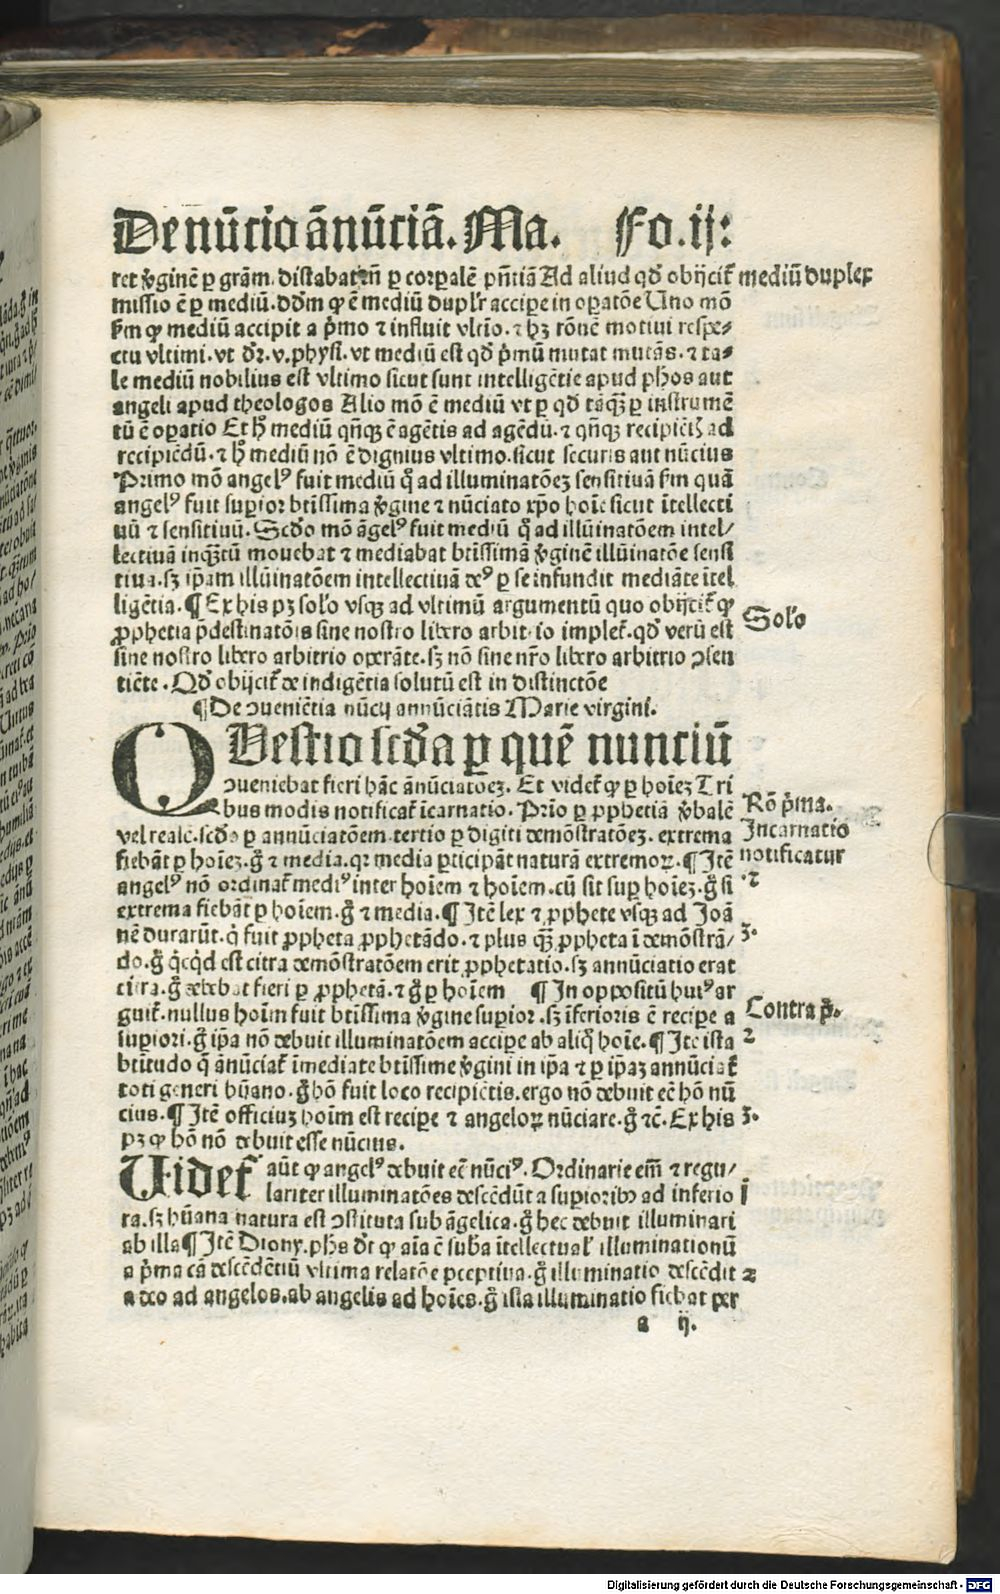 De nūtio ānūtiā. Ma. Fo. ij:
ret ꝟginē ꝑ grām. distabat tñ ꝑ corꝑalē pñtiā Ad aliud qđ obijcit᷑ mediū duplex
missio ē ꝑ mediū. đđm ꝙ ē mediū duplr accipe in oꝑatōe Uno mō
ẜm ꝙ mediū accipit a p̄mo ⁊ influit vlerīo. ⁊ hꝫ rōnē motiui respe⸗
ctu vltimi. vt đr. v. physi. vt mediū est qđ p̄mū mutat mutās. ⁊ ta⸗
le mediū nobilius est vltimo sicut sunt intelligētie apud phos aut
angeli apud theologos Alio mō ē mediū vt ꝑ qđ tāqꝫ ꝑ instrumē
tū ē oꝑatio Et hͦ mediū qñqꝫ ē agētis ad agēdū. ⁊ qñqꝫ recipiētis ad
recipiēdū. ⁊ hͦ mediū nō ē dignius vltimo. sicut securis aut nūcius
Primo mō angelꝰ fuit mediū q̊ ad illuminatōeꝫ sensitiuā ẜm quā
angelꝰ fuit suꝑior btīssima ꝟgine ⁊ nūciato xp̄o hoīe sicut ītellecti
uū ⁊ sensitiuū. Scđo mō āgelꝰ fuit mediū q̊ ad illūinatōem intel/
lectiuā inqꝫtū mouebat ⁊ mediabat btīssimā ꝟginē illūinatōe sensi
tiua. sꝫ ip̄am illūinatōem intellectiuā deꝰ ꝑ se infundit mediāte ītel
ligētia. ¶ Ex his pꝫ solo vsqꝫ ad vltimū argumentū quo obijcit᷑ ꝙ
ꝓphetia p̄destinatōis sine nostro libero arbitrio implet᷑. qđ verū est
Solo
sine nostro libero arbitrio operāte. sꝫ nō sine nr̄o libero arbitrio ↄsen
tiēte. Qđ obijcit᷑ de indigētia solutū est in distinctōe
¶ De ↄueniētia nūcij annūciātis Marie virgini.
QUestio scđa ꝑ quē nuntiū
ↄueniebat fieri hāc ānūciatōeꝫ. Et videt᷑ ꝙ ꝑ hoīeꝫ Tri
bus modis notificat᷑ īcarnatio. Prīo ꝑ ꝓphetiā ꝟbalē
Rō p̄ma.
Incarnatio
notificatur
vel reale. scđo ꝑ annūciatōem. tertio ꝑ digiti demōstratōeꝫ. extrema
fiebāt ꝑ hoīeꝫ. g̊ ⁊ media. qꝛ media ꝑticipāt naturā extremoꝝ. ¶ Itē
angelꝰ nō ordinat᷑ mediꝰ inter hoīem ⁊ hoīem. cū sit suꝑ hoīeꝫ. g̊ si
.2
extrema fiebāt ꝑ hoīem. g̊ ⁊ media. ¶ Itē lex ⁊ ꝓphete vsqꝫ ad Joā
nē durarūt. q̇ fuit ꝓpheta ꝓphetādo. ⁊ plus qꝫ ꝓpheta ī demōstrā/
3.
do. g̊ q̇cq̇d est citra demōstratōem erit ꝓphetatio. sꝫ annūciatio erat
citra. g̊ debebat fieri ꝑ ꝓphetā. ⁊ g̊ ꝑ hoīem ¶ In oppositū huiꝰ ar
guit᷑. nullus hoīm fuit btīssima ꝟgine suꝑior. sꝫ īferioris ē recipe a
Contra p̄.
suꝑiori. g̊ ip̄a nō debuit illuminatōem accipe ab aliq̊ hoīe. ¶ Itē ista
2
btītudo q̄ ānūciat᷑ īmediate btīssime ꝟgini in ip̄a ⁊ ꝑ ip̄aꝫ annūciat᷑
toti generi hūano. g̊ hō fuit loco recipiētis. ergo nō debuit eē hō nū
cius. ¶ Itē officiuꝫ hoīm est recipe ⁊ angeloꝝ nūciare. g̊ ⁊c. Ex his
3.
pꝫ ꝙ hō nō debuit esse nūcius.
Uidet᷑ aūt ꝙ angelꝰ debuit eē nūciꝰ. Ordinarie em̄ ⁊ regu/
lariter illuminatōes descēdūt a suꝑioribꝰ ad inferio
1
ra. sꝫ hūana natura est ↄstituta sub āgelica. g̊ hec debuit illuminari
ab illa ¶ Itē Diony. phs đt ꝙ aīa ē suba ītellectual᷑ illuminationū
a p̄ma cā descēdētiū vltima relatōe ꝑceptiua. g̊ illuminatio descēdit
2
a deo ad angelos. ab angelis ad hoīes. g̊ ista illuminatio fiebat per
a ij.
Digitalisierung gefördert durch die Deutsche Forschungsgemeinschaft - DFG